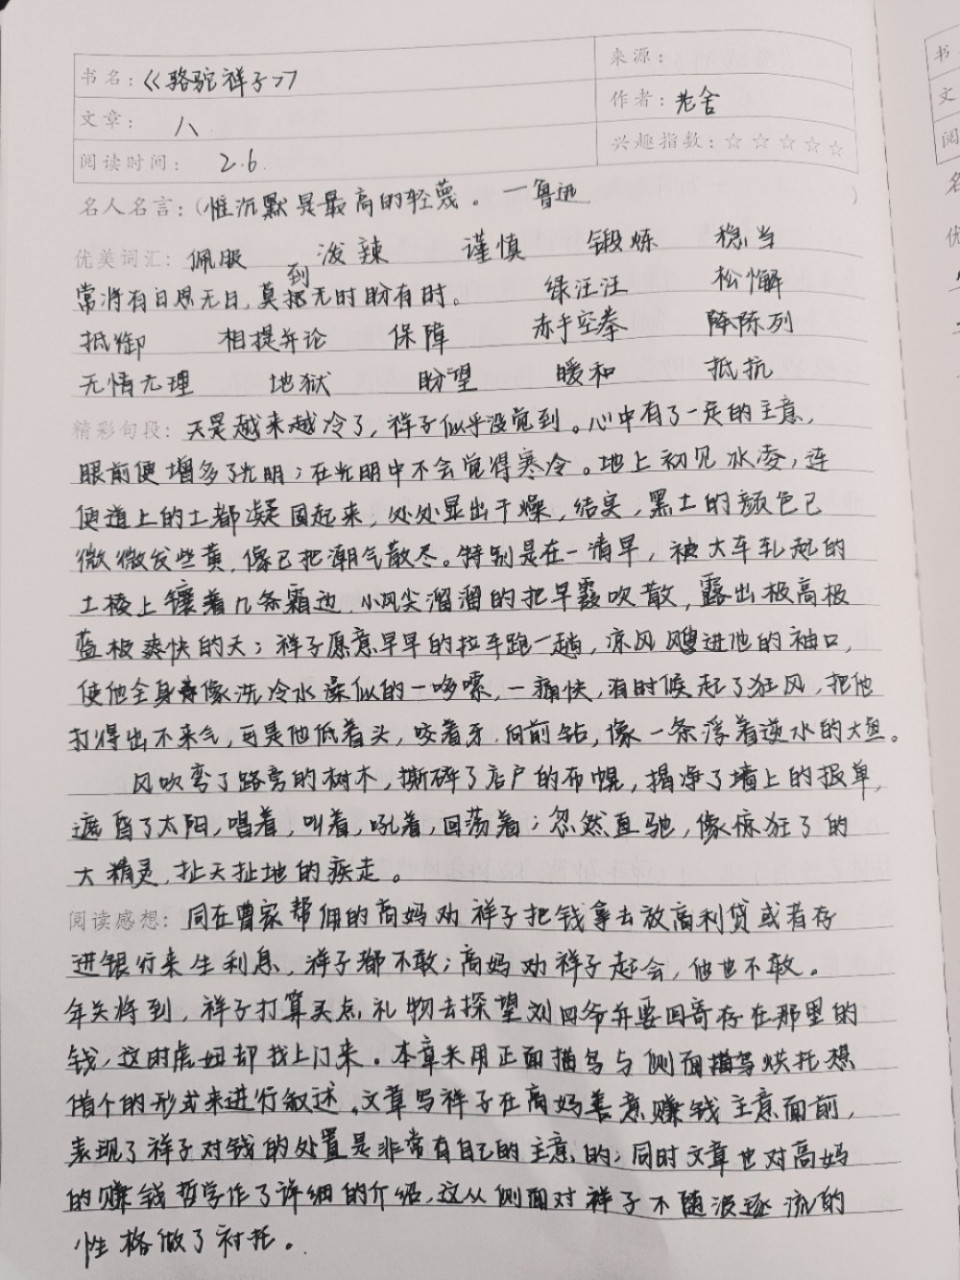 书名：《骆驼祥子》
来源：
文章：八
作者：老舍
阅读时间：2.6.
兴趣指数：☆☆☆☆☆
名人名言：（惟沉默是最高的轻蔑。一鲁迅 ）
优美词汇：佩服 泼辣 谨慎 锻炼 稳当
常将有日思无日，莫到无时盼有时。 绿汪汪 松懈
抵御 相提并论 保障 赤手空拳 陈列
无情无理 地狱 盼望 暖和 抵抗
精彩句段：天是越来越冷了，祥子似乎没觉到。心中有了一定的主意，
眼前便增多了光明；在光明中不会觉得寒冷。地上初见水凌，连
便道上的土都凝固起来，处处显出干燥，结实，黑土的颜色已
微微发些黄，像已把潮气散尽。特别是在一清早，被大车轧起的
土棱上镶着几条霜边，小风尖溜溜的把早霞吹散，露出极高极
蓝极爽快的天；祥子愿意早早的拉车跑一趟，凉风飕进他的袖口，
使他全身像洗冷水澡似的一哆嗦，一痛快，有时候起了狂风，把他
打得出不来气，可是他低着头，咬着牙，向前钻，像一条浮着逆水的大鱼。
风吹弯了路旁的树木，撕碎了店户的布幌，揭净了墙上的报单，
遮昏了太阳，唱着，叫着，吼着，回荡着；忽然直驰，像惊狂了的
大精灵，扯天扯地的疾走。
阅读感想：同在曹家帮佣的高妈劝祥子把钱拿去放高利贷或者存
进银行来生利息，祥子都不敢；高妈劝祥子起会，他也不敢。
年关将到，祥子打算买点礼物去探望刘四爷并要回寄存在那里的
钱，这时虎妞却找上门来。本章采用正面描写与侧面描写烘托想
借个的形式来进行叙述。文章写祥子在高妈善意赚钱主意面前，
表现了祥子对钱的处置是非常有自己的主意的；同时文章也对高妈
的赚钱哲学作了详细的介绍，这从侧面对祥子不随波逐流的
性格做了衬托。